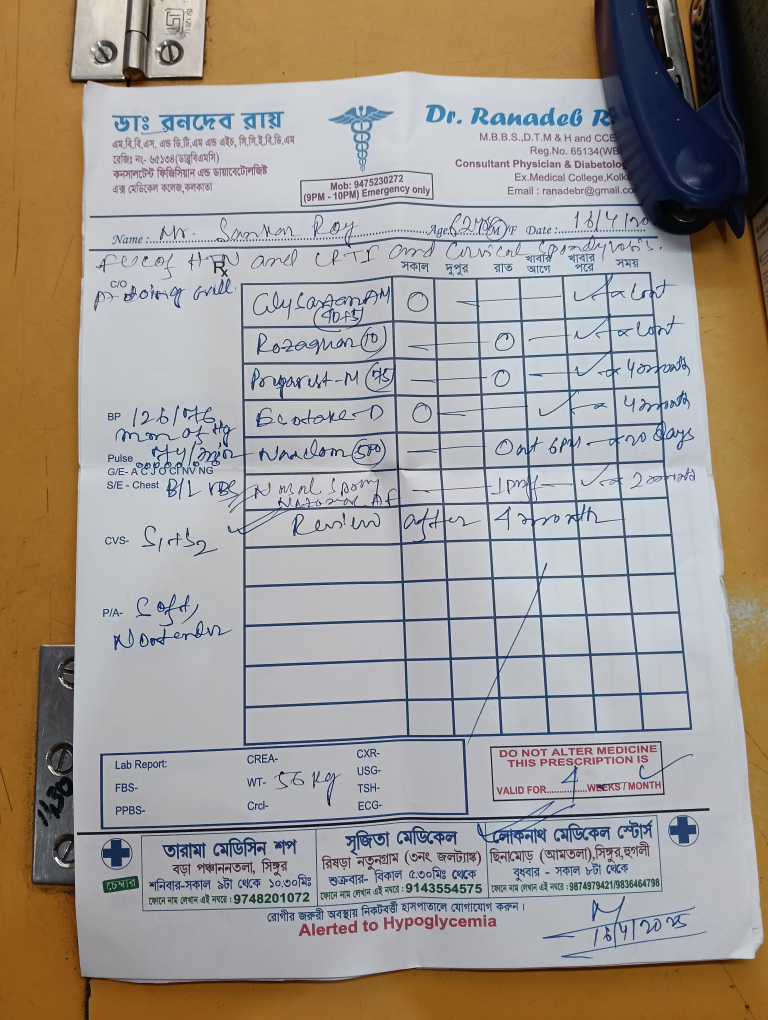 ডাঃ রনদেব রায়
এম.বি.বি.এস, এন্ড ডি.টি.এম এন্ড এইচ, সি.সি.ই.বি.ডি.এম
রেজিঃ নং- ৬৫১৩৪(ডাব্লুবিএমসি)
কনসালটেন্ট ফিজিসিয়ান এন্ড ডায়াবেটোলজিষ্ট
এক্স মেডিকেল কলেজ,কলকাতা
Mob: 9475230272
(9PM - 10PM) Emergency only)
Dr. Ranadeb R
M.B.B.S.,D.T.M & H and CCE
Reg.No. 65134(WB
Consultant Physician & Diabetolo
Ex.Medical College,Kolk
Email : ranadebr@gmail.co
Name : Mr. Sankar Roy Age 62 M/F Date : 16/4/20
HTN and and Cervical Spondylosis.
Rx
সকাল দুপুর রাত খাবার আগে খাবার পরে সময়
C/O
Pt doing well.
40+5
(10)
(75) 4 month
D 4 month
(500) at 6PM 20 days
Nasal Spray 1 puff 2 month
Review after 4 month
BP 126/76
mm of Hg
Pulse 74/min
G/E- A C J O CI NV NG
S/E - Chest B/L VBS
CVS- S1+S2
P/A- Soft,
Nontender
Lab Report:
FBS-
PPBS-
CREA-
WT- 56 kg
Crcl-
CXR-
USG-
TSH-
ECG-
DO NOT ALTER MEDICINE
THIS PRESCRIPTION IS
VALID FOR 4 WEEKS / MONTH
চেম্বার
তারামা মেডিসিন শপ
বড়া পঞ্চাননতলা, সিঙ্গুর
শনিবার-সকাল ৯টা থেকে ১০.৩০মিঃ
ফোনে নাম লেখান এই নম্বরে : 9748201072
সৃজিতা মেডিকেল
রিষড়া নতুনগ্রাম (৩নং জলট্যাঙ্ক)
শুক্রবার- বিকাল ৫.৩০মিঃ থেকে
ফোনে নাম লেখান এই নম্বরে : 9143554575
লোকনাথ মেডিকেল স্টোর্স
ছিনামোড় (আমতলা),সিঙ্গুর,হুগলী
বুধবার - সকাল ৮টা থেকে
ফোনে নাম লেখান এই নম্বরে : 9874979421/9836464798
রোগীর জরুরী অবস্থায় নিকটবর্ত্তী হাসপাতালে যোগাযোগ করুন।
Alerted to Hypoglycemia
16/4/2025